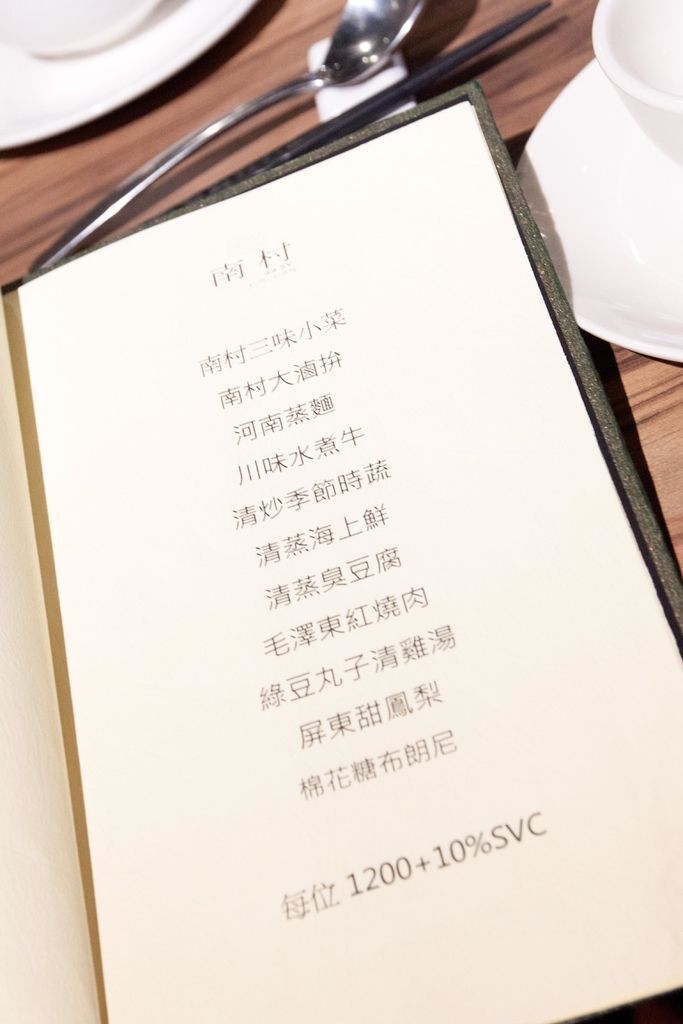 南村
南村三味小菜
南村大滷拚
河南蒸麵
川味水煮牛
清炒季節時蔬
清蒸海上鮮
清蒸臭豆腐
毛澤東紅燒肉
綠豆丸子清雞湯
屏東甜鳳梨
棉花糖布朗尼
每位 1200+10%SVC